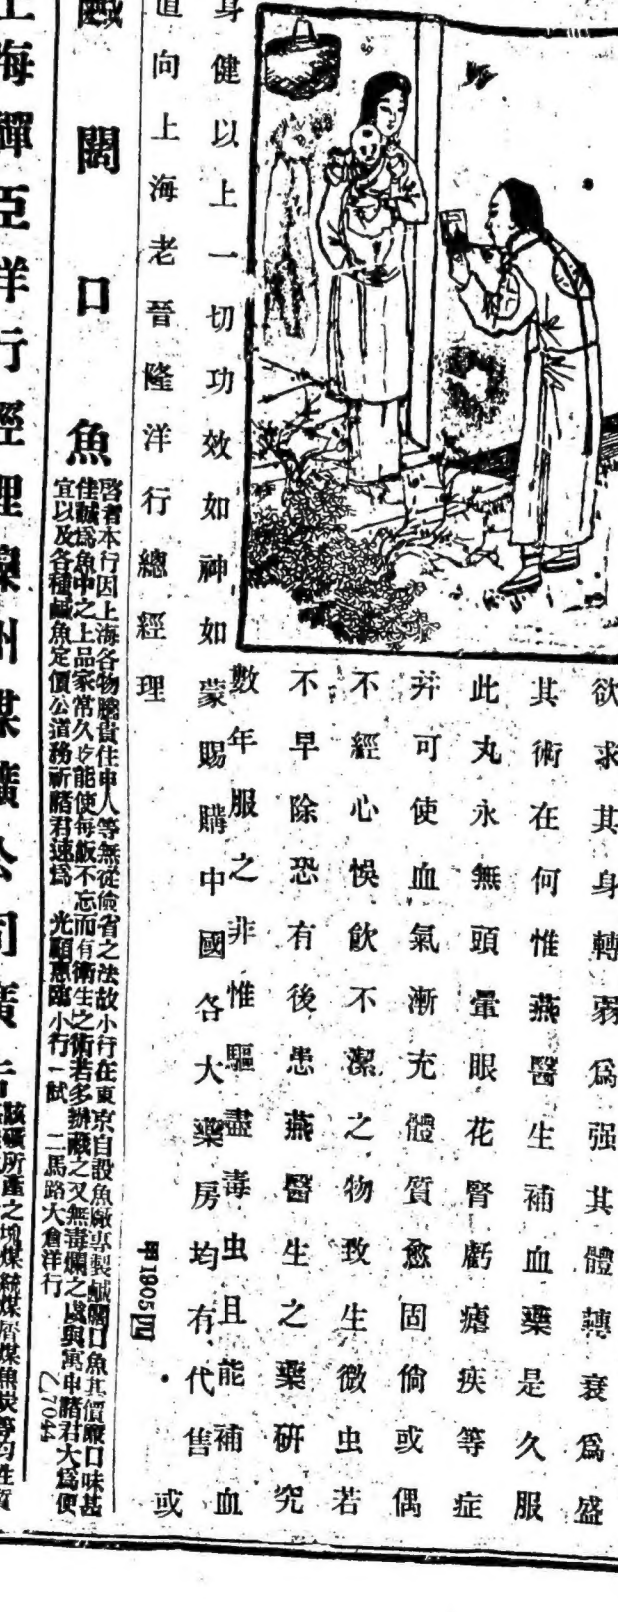 欲求其身轉弱爲强其體轉衰爲盛
其術在何惟燕醫生補血藥是久服
此丸永無頭暈眼花腎虧瘧疾等症
幷可使血氣漸充體質愈固倘或偶
不經心悞飲不潔之物致生微虫若
不早除恐有後患燕醫生之藥研究
數年服之非惟驅盡毒虫且能補血
身健以上一切功效如神如蒙賜購中國各大藥房均有代售或
道向上海老晉隆洋行總經理
甲1905四
鹹闊口魚
啓者本行因上海各物騰貴住申人等無從儉省之法故小行在東京自設魚廠專製鹹闊口魚其價廉口味甚
佳誠爲魚中之上品家常久吃能使每飯不忘而有衛生之術若多辦藏之又無毒爛之慮與寓申諸君大爲便
宜以及各種鹹魚定價公道務祈諸君速爲 光顧惠臨小行一試 二馬路大倉洋行
乙7044
上海禪臣洋行經理 州煤礦公司廣告
該礦所產之塊煤統煤屑煤焦炭等均性質